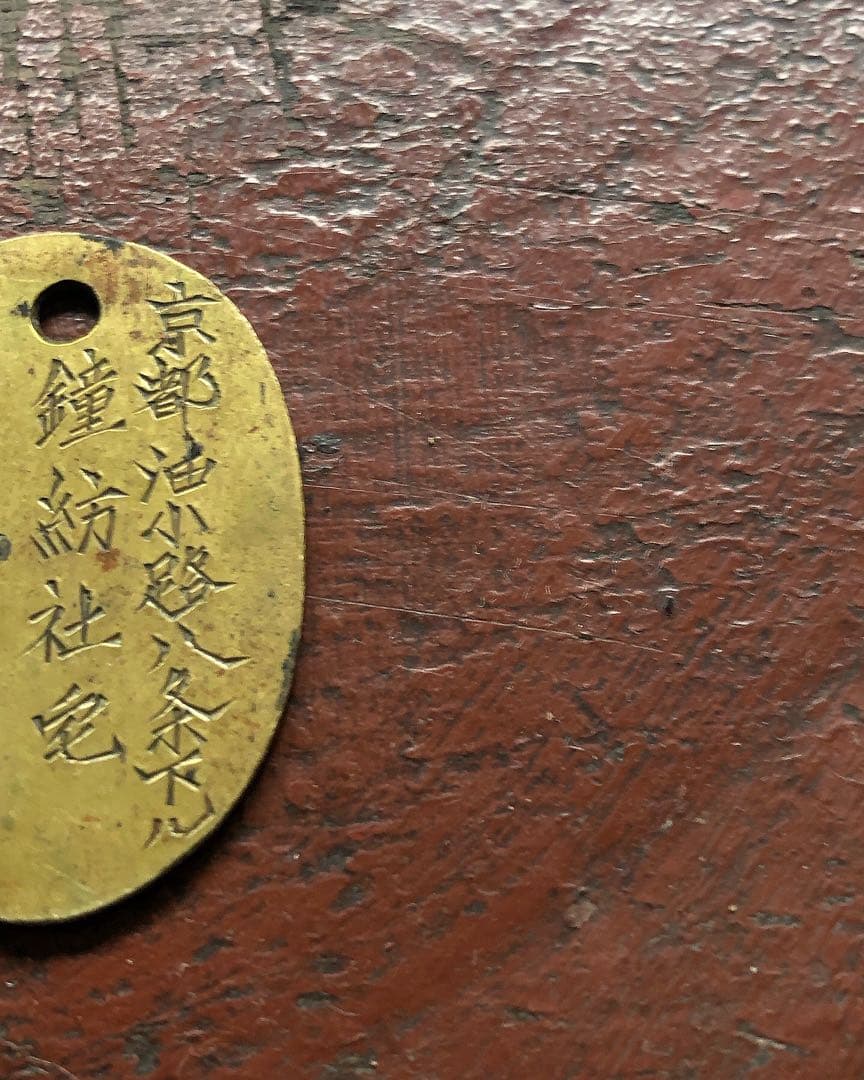 京都油小路八条下ル
鐘紡社宅